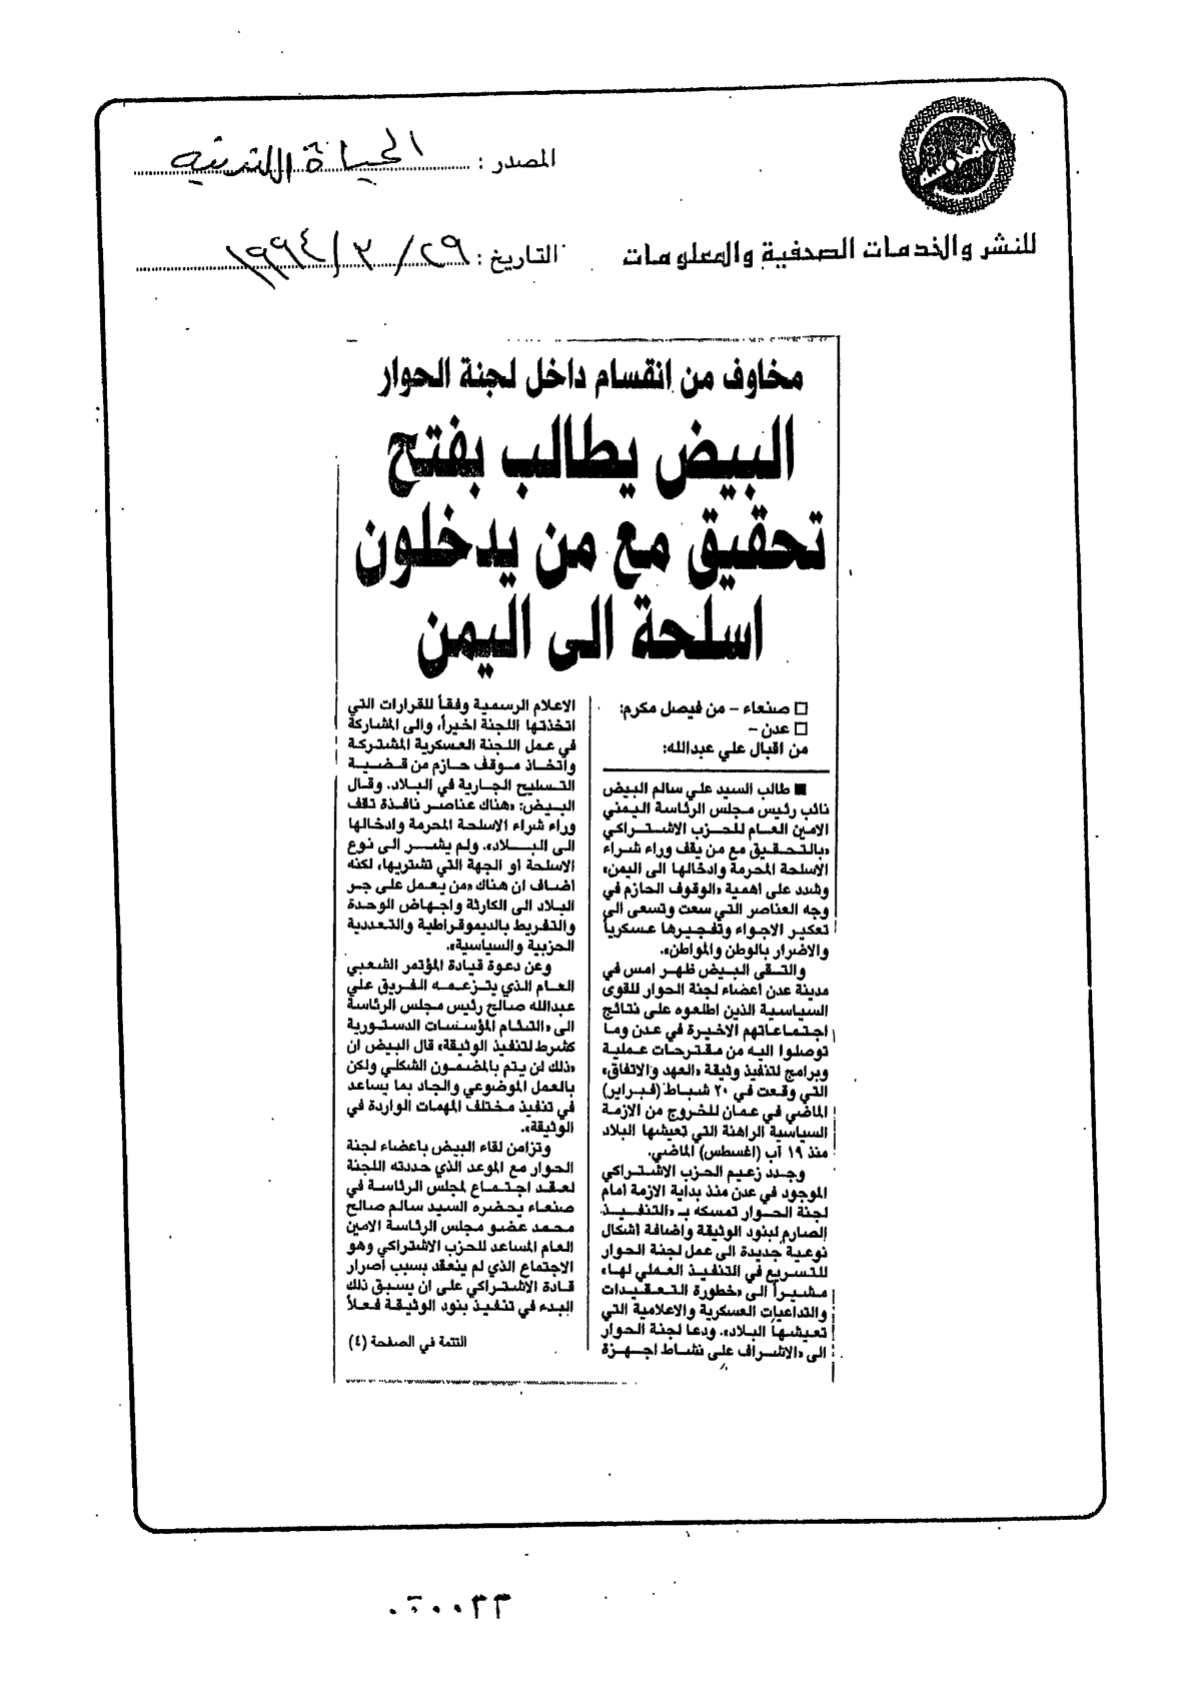 المصدر : الحياة اللندنية
للنشر والخدمات الصحفية والمعلومات
التاريخ : ٢٩ / ٣ / ١٩٩٤
مخاوف من انقسام داخل لجنة الحوار
البيض يطالب بفتح
تحقيق مع من يدخلون
اسلحة الى اليمن
□ صنعاء - من فيصل مكرم:
□ عدن -
من اقبال علي عبدالله:
■ طالب السيد علي سالم البيض
نائب رئيس مجلس الرئاسة اليمني
الامين العام للحزب الاشتراكي
«بالتحقيق مع من يقف وراء شراء
الاسلحة المحرمة وادخالها الى اليمن»
وشدد على اهمية «الوقوف الحازم في
وجه العناصر التي سعت وتسعى الى
تعكير الاجواء وتفجيرها عسكرياً
والاضرار بالوطن والمواطن».
والتقى البيض ظهر امس في
مدينة عدن اعضاء لجنة الحوار للقوى
السياسية الذين اطلعوه على نتائج
اجتماعاتهم الاخيرة في عدن وما
توصلوا اليه من مقترحات عملية
وبرامج لتنفيذ وثيقة «العهد والاتفاق»
التي وقعت في ٢٠ شباط (فبراير)
الماضي في عمان للخروج من الازمة
السياسية الراهنة التي تعيشها البلاد
منذ ١٩ آب (اغسطس) الماضي.
وجدد زعيم الحزب الاشتراكي
الموجود في عدن منذ بداية الازمة امام
لجنة الحوار تمسكه بـ «التنفيذ
الصارم لبنود الوثيقة واضافة اشكال
نوعية جديدة الى عمل لجنة الحوار
للتسريع في التنفيذ العملي لها»
مشيراً الى «خطورة التعقيدات
والتداعيات العسكرية والاعلامية التي
تعيشها البلاد». ودعا لجنة الحوار
الى «الاشراف على نشاط اجهزة
الاعلام الرسمية وفقاً للقرارات التي
اتخذتها اللجنة اخيراً، والى المشاركة
في عمل اللجنة العسكرية المشتركة
واتخاذ موقف حازم من قضية
التسليح الجارية في البلاد. وقال
البيض: «هناك عناصر نافذة تقف
وراء شراء الاسلحة المحرمة وادخالها
الى البلاد». ولم يشر الى نوع
الاسلحة او الجهة التي تشتريها، لكنه
اضاف ان هناك «من يعمل على جر
البلاد الى الكارثة واجهاض الوحدة
والتفريط بالديموقراطية والتعددية
الحزبية والسياسية».
وعن دعوة قيادة المؤتمر الشعبي
العام الذي يتزعمه الفريق علي
عبدالله صالح رئيس مجلس الرئاسة
الى «التئام المؤسسات الدستورية
كشرط لتنفيذ الوثيقة» قال البيض ان
«ذلك لن يتم بالمضمون الشكلي ولكن
بالعمل الموضوعي والجاد بما يساعد
في تنفيذ مختلف المهمات الواردة في
الوثيقة».
وتزامن لقاء البيض باعضاء لجنة
الحوار مع الموعد الذي حددته اللجنة
لعقد اجتماع لمجلس الرئاسة في
صنعاء يحضره السيد سالم صالح
محمد عضو مجلس الرئاسة الامين
العام المساعد للحزب الاشتراكي وهو
الاجتماع الذي لم ينعقد بسبب اصرار
قادة الاشتراكي على ان يسبق ذلك
البدء في تنفيذ بنود الوثيقة فعلاً
التتمة في الصفحة (٤)